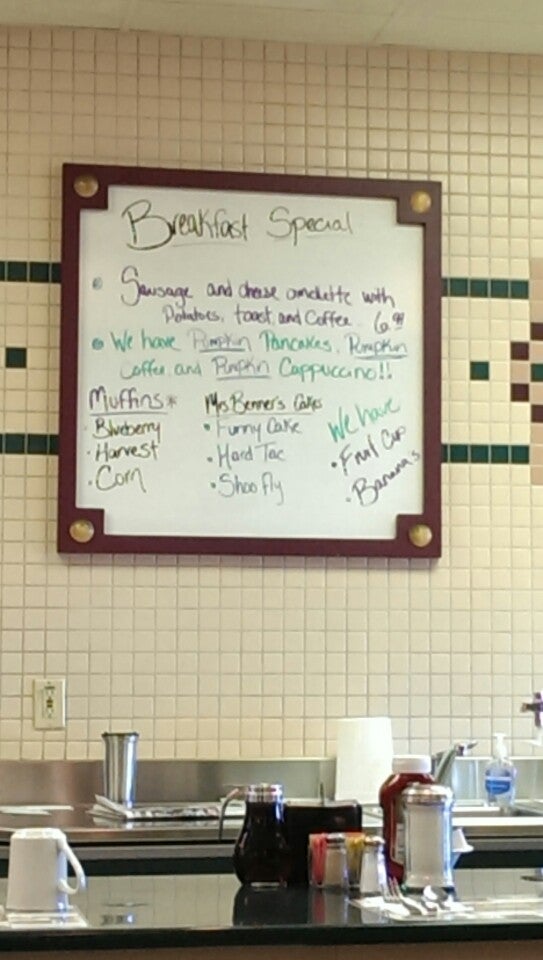 Breakfast Special
Sausage and cheese omelette with
Potatoes, toast, and Coffee. 6.99
We have Pumpkin Pancakes, Pumpkin
Coffee and Pumpkin Cappuccino!!
Muffins*
Blueberry
Harvest
Corn
Mrs Benner's Cakes
Funny Cake
Hard Tac
Shoo fly
We have
Fruit Cup
Bananas